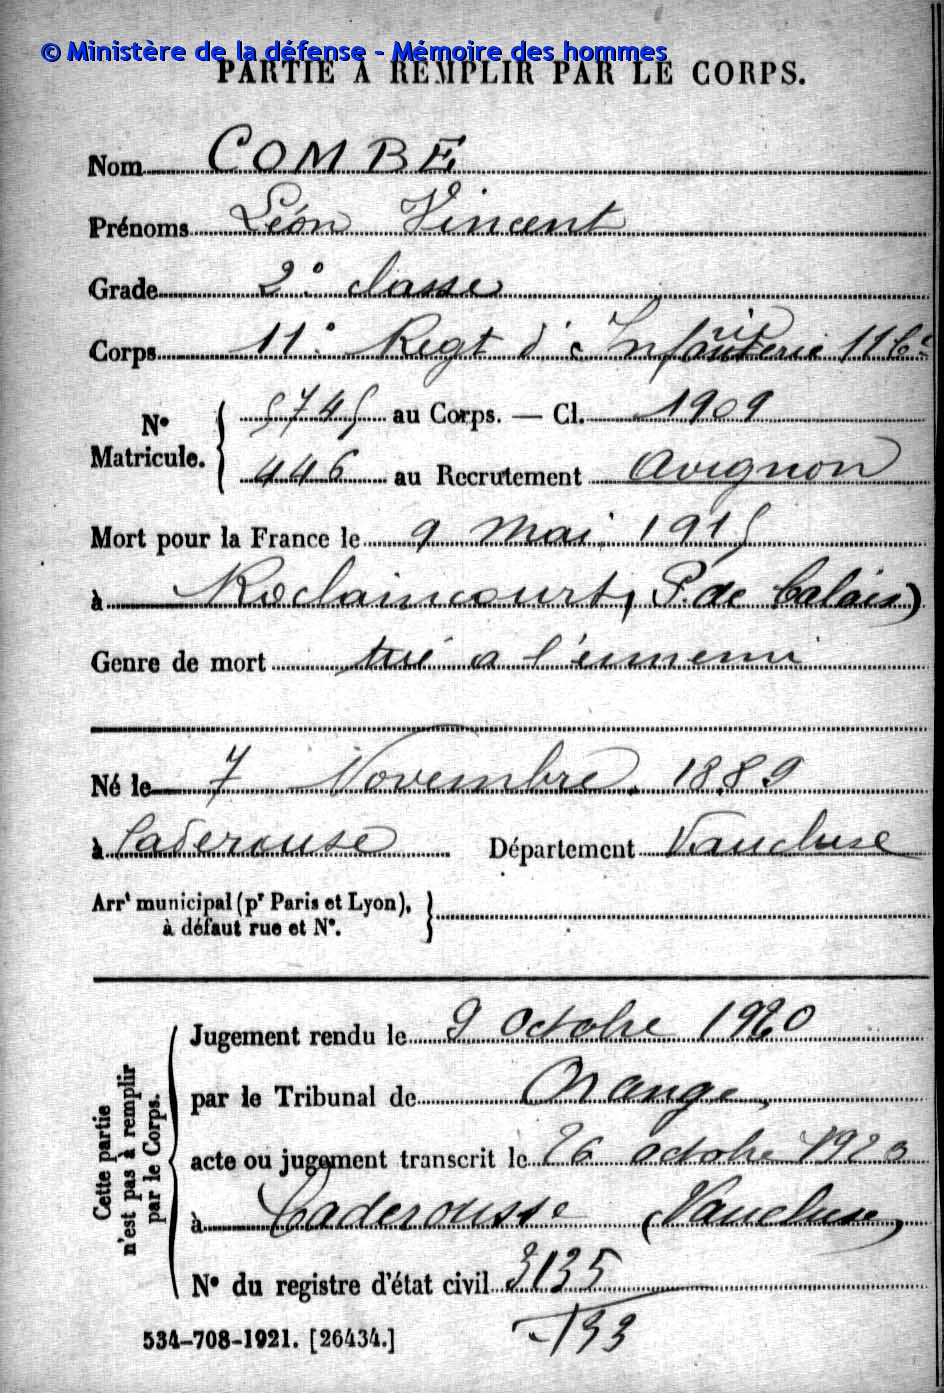 © Ministère de la défense - Mémoire des hommes
PARTIE À REMPLIR PAR LE CORPS.
Nom COMBE
Prénoms Léon Vincent
Grade 2e classe
Corps 11e Regt d'Infanterie 11e Cie
No Matricule. { 5745 au Corps. — Cl. 1909
446 au Recrutement Avignon
Mort pour la France le 9 Mai 1915
à Roclaincourt, P. de Calais)
Genre de mort tué a l'ennemi
Né le 7 Novembre 1889
à Caderousse Département Vaucluse
Arrt municipal (pr Paris et Lyon), à défaut rue et No. }
Cette partie n'est pas à remplir par le Corps.
Jugement rendu le 9 Octobre 1920
par le Tribunal de Orange,
acte ou jugement transcrit le 26 octobre 1920
à Caderousse (Vaucluse)
No du registre d'état civil 3135
133
534-708-1921. [26434.]